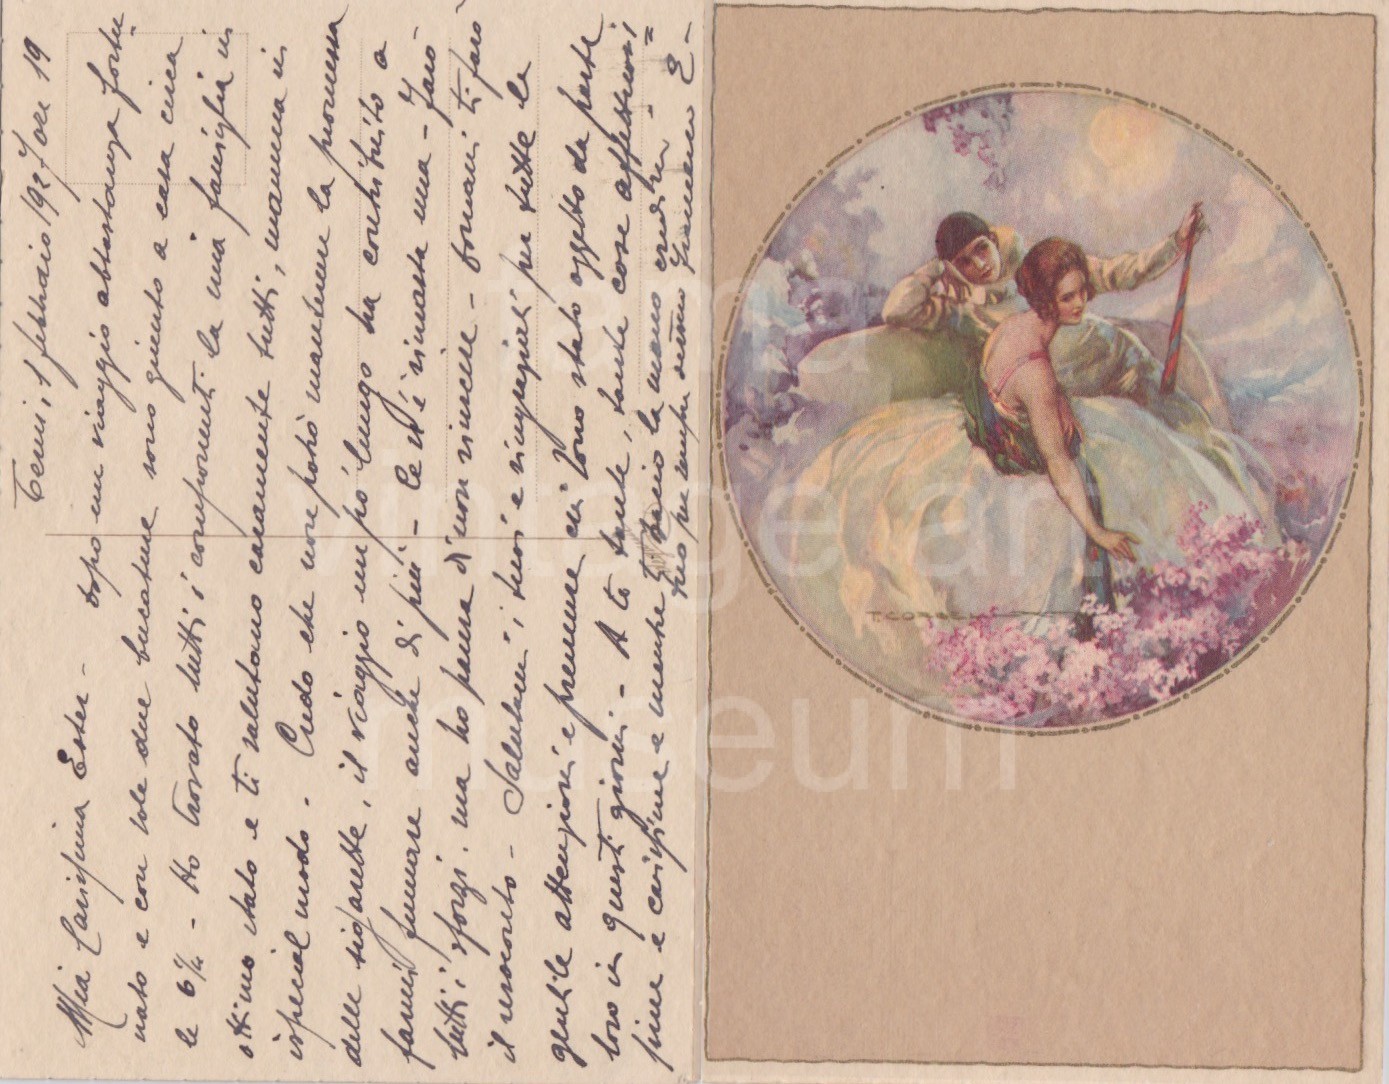 Terni, 1 febbraio 1927 ore 19
Mia Carissima Ester -
dopo un viaggio abbastanza fortu=
nato e con sole due bucature sono giunto a casa circa
le 6 1/4 - Ho trovato tutti i componenti la mia famiglia in
ottimo stato e ti salutano caramente tutti, mamma in
special modo. Credo che non potrò mantenere la promessa
delle sigarette, il viaggio un pó lungo ha contribuito a
farmi fumare anche di più - Ce n'è rimasta una - Farò
tutti i sforzi, ma ho paura di non vincere - domani ti farò
il resoconto - Salutami i tuoi e ringraziali per tutte le
gentile attenzioni e premure cui sono stato oggetto da parte
loro in questi giorni - A te tante, tante cose affettuosi=
sime e carissime e mentre ti bacio la mano credimi
tuo per sempre
T. CORBELLA
tama
vintage art
museum